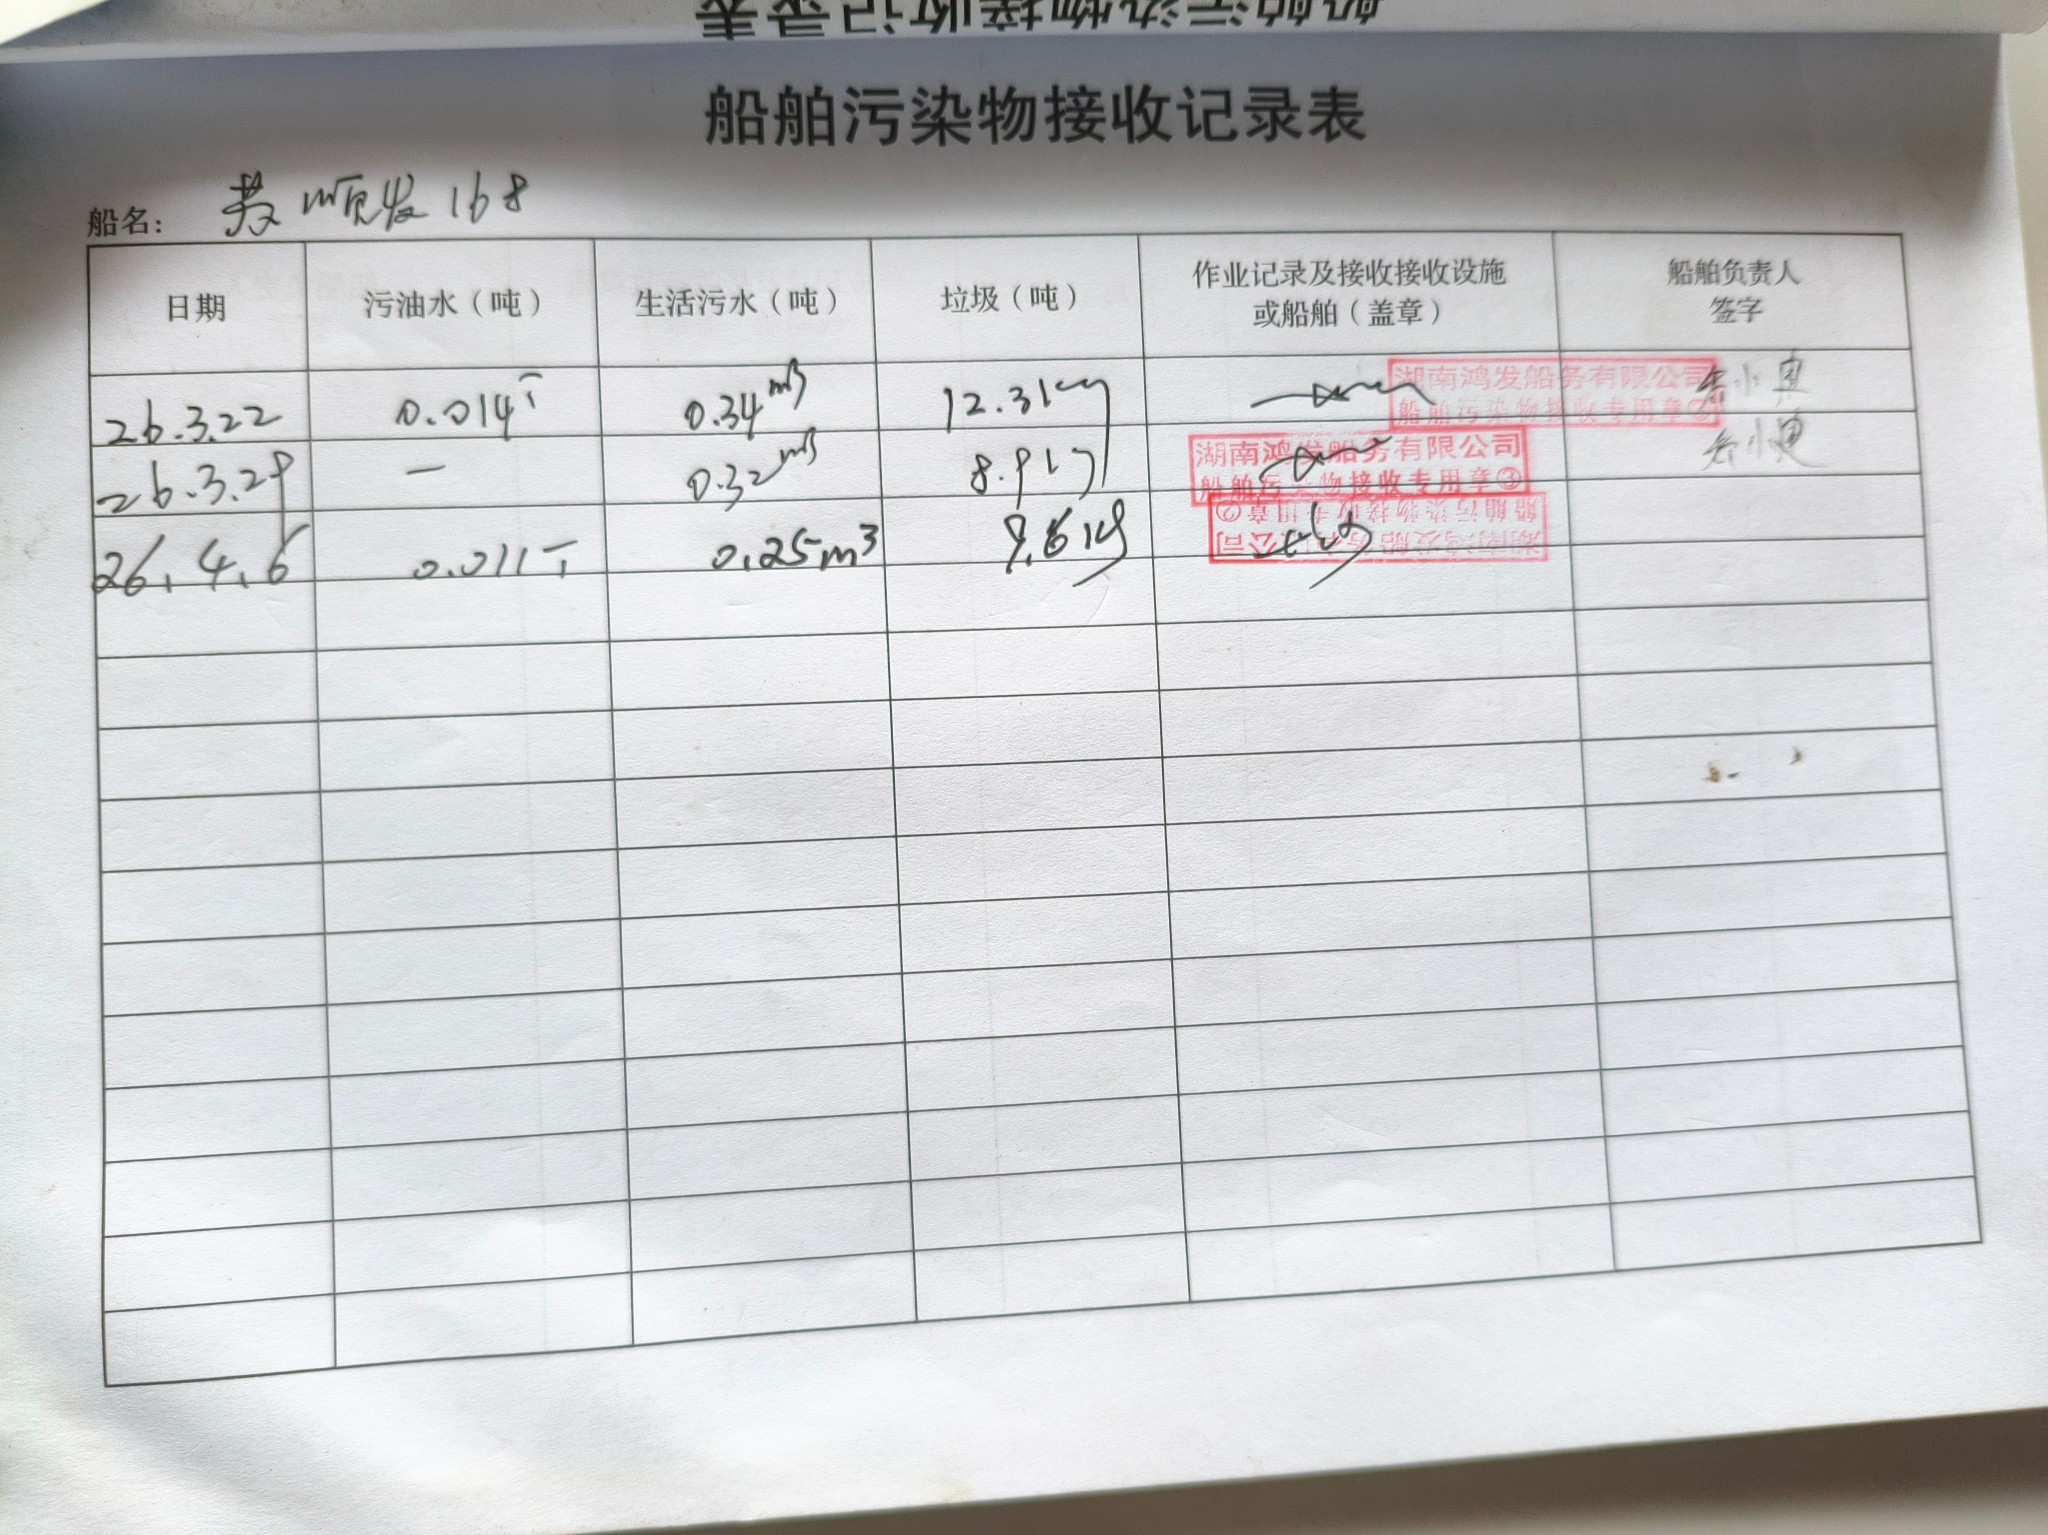 船舶污染物接收记录表
船舶污染物接收记录表
船名： 顺发168
日期 污油水（吨） 生活污水（吨） 垃圾（吨） 作业记录及接收接收设施或船舶（盖章） 船舶负责人签字
26.3.22 0.014T 0.34m3 12.31kg 湖南鸿发船务有限公司 船舶污染物接收专用章②
26.3.29 — 0.32m3 8.91kg 湖南鸿发船务有限公司 船舶污染物接收专用章③
26.4.6 0.011T 0.25m3 9.61kg 湖南鸿发船务有限公司 船舶污染物接收专用章②